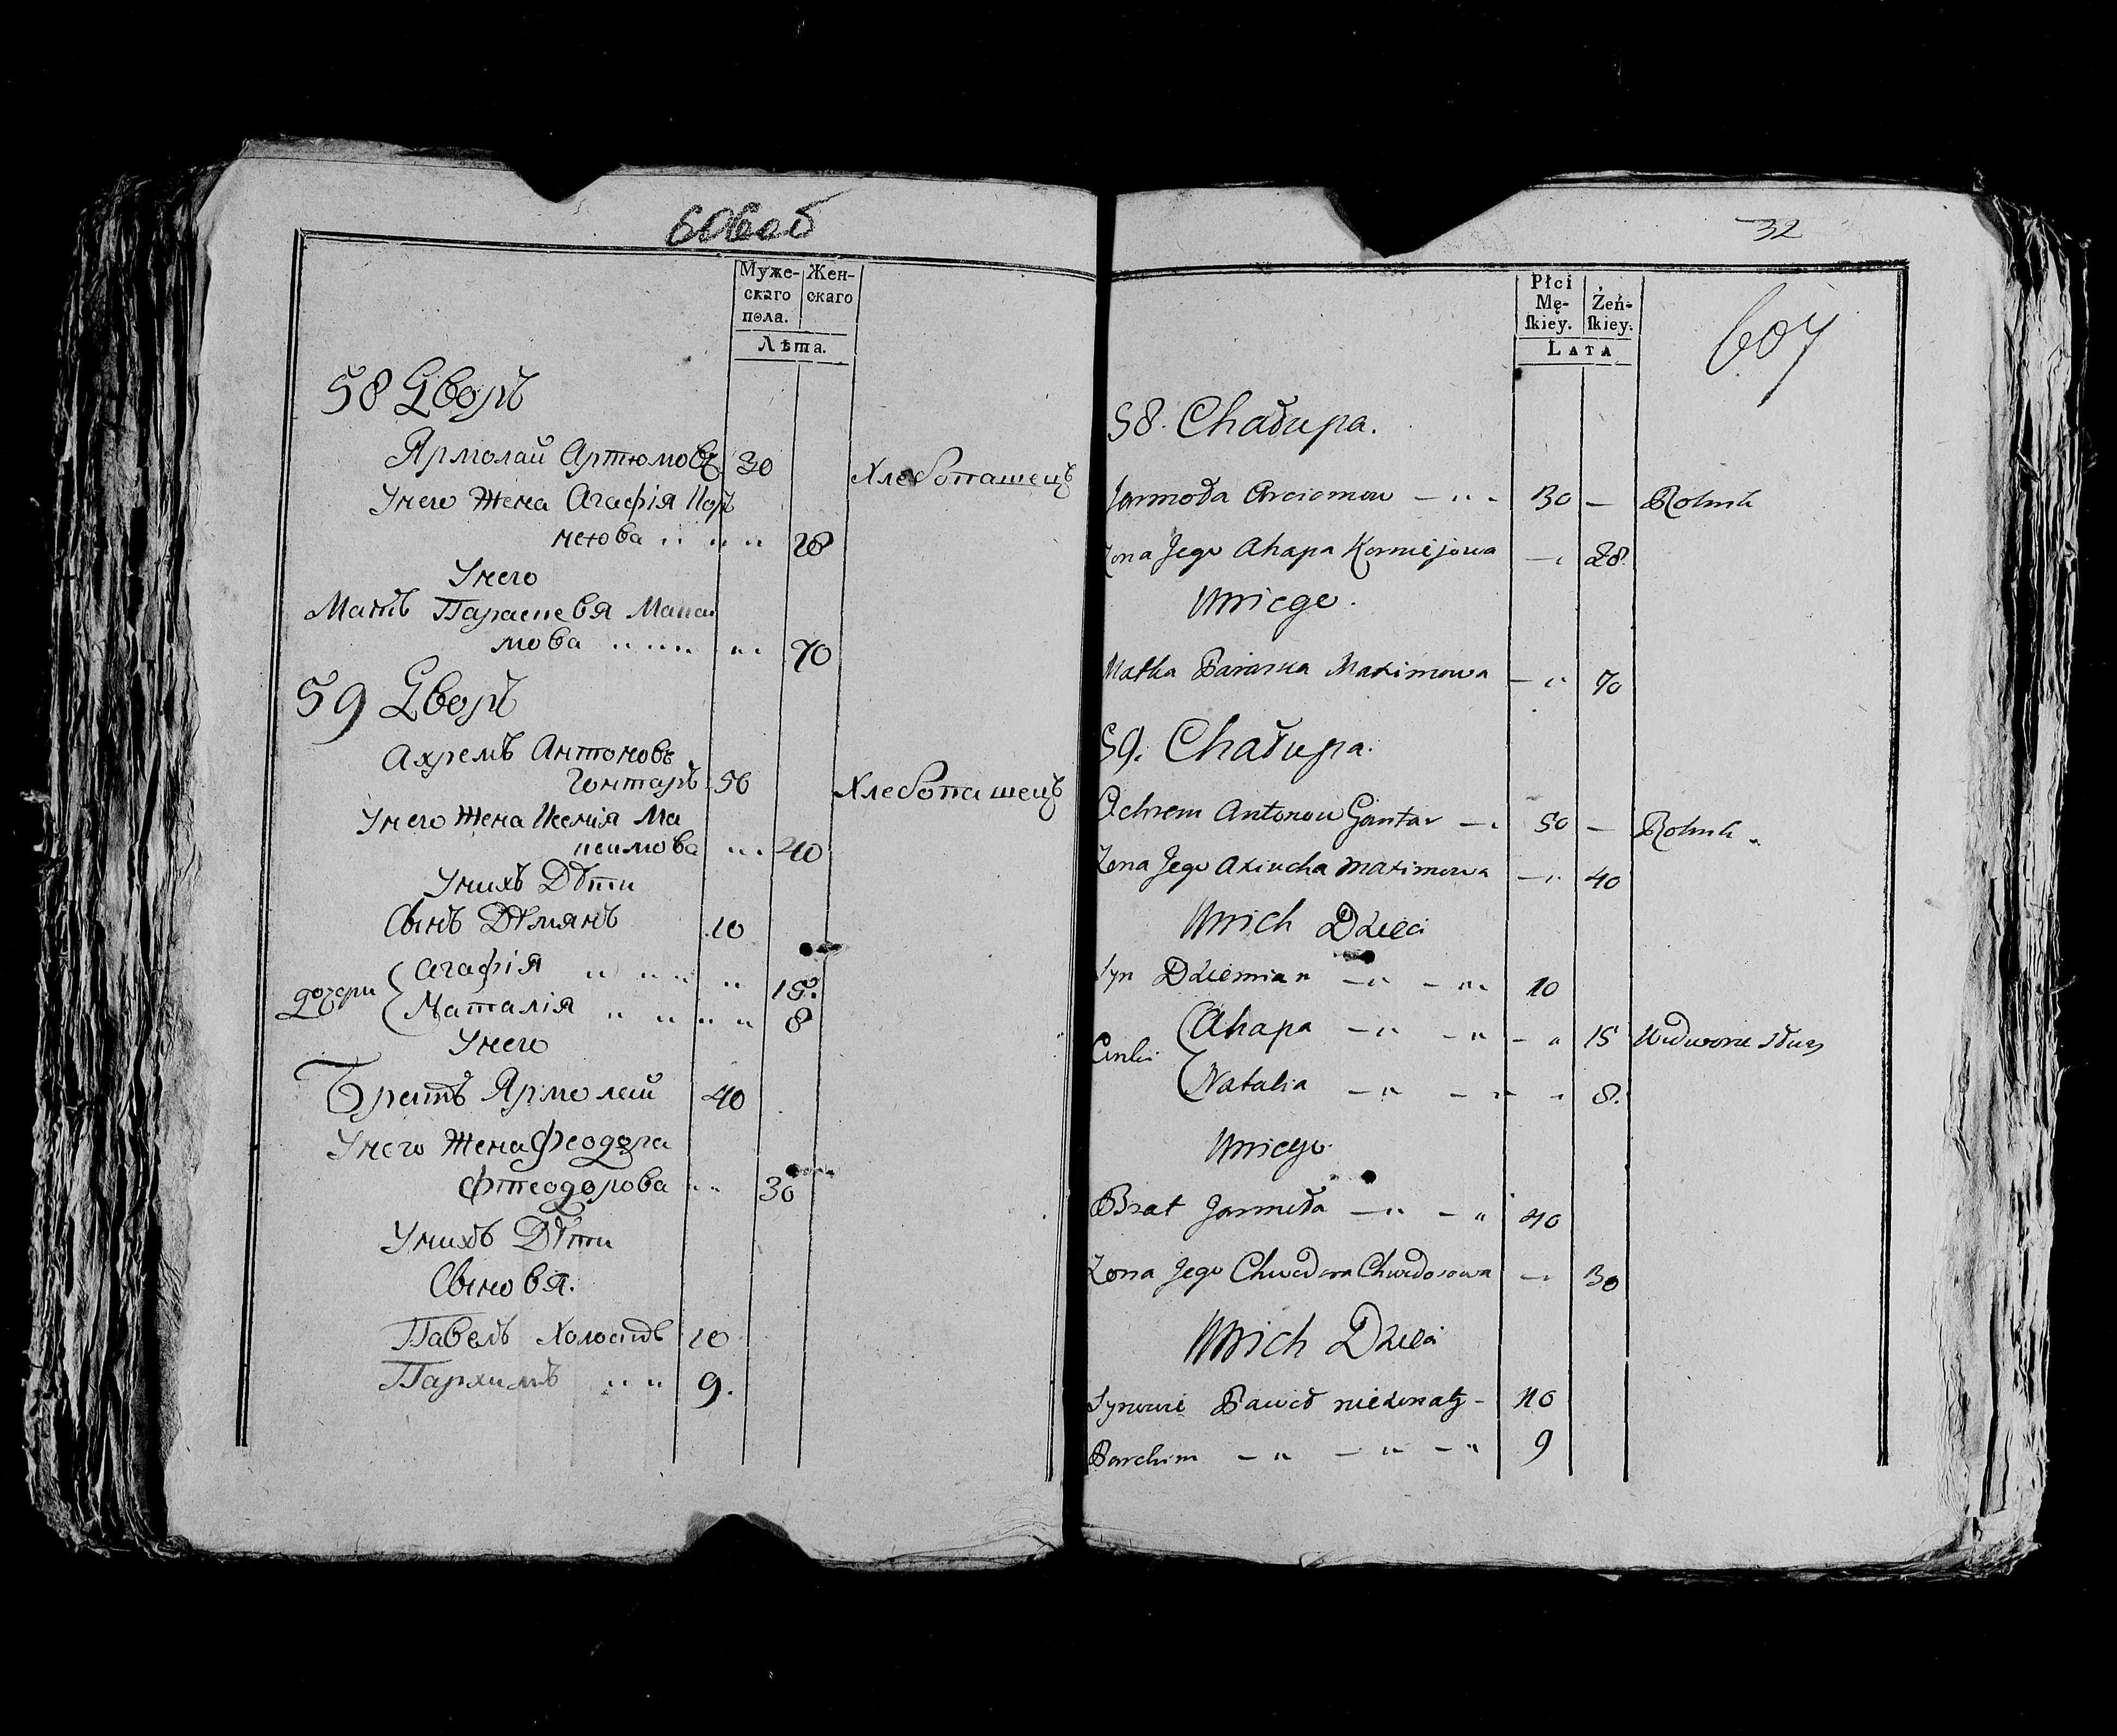 Муже-
скаго
пола.
Жен-
скаго
Лѣта.
58 Дворъ
Ярмолай Артюмовъ 30 Хлебопашецъ
Унего Жена Агафія Кор
неюва 〃 〃 〃 28
Унего
Мать Параскевя Макси
мова 〃 〃 〃 70
59 Дворъ
Ахремъ Антоновъ
Гонтаръ 50 Хлебопашецъ
Унего Жена Ксенія Ма
ксимова 〃 40
Унихъ Дѣти
Сынъ Дѣмянъ 10
дочери Агафія 〃 〃 〃 15.
Наталія 〃 〃 〃 〃 8
Унего
Братъ Ярмолай 40
Унего Жена Феодора
Фтеодорова 〃 30
Унихъ Дѣти
Сыновя.
Павелъ Холостъ 10
Пархимъ 〃 〃 9.
32
607
Płci
Mę-
ſkiey.
Żeń-
ſkiey.
LATA
58. Chałupa.
Jarmoła Arciomow — 〃 - 30 — Rolnik
Zona Jego Ahapa Korniejowa — 〃 28.
Uniego.
Matka Paraska Maximowa — 〃 70
59. Chałupa.
Achrem Antonow Gontar — 〃 50 — Rolnik
Zona Jego Axiucha Maximowa — 〃 40
Unich Dzieci
Syn Dziemian — 〃 — 〃 10
Curki Ahapa — 〃 — 〃 — 〃 15
Natalia — 〃 — 〃 〃 8.
Uniego.
Brat Jarmoła — 〃 — 〃 40
Zona Jego Chwedora Chwedorowa — 〃 30
Unich Dzieci
Synowie Paweł nieżonaty - 10
Parchim — 〃 — 〃 — 〃 9